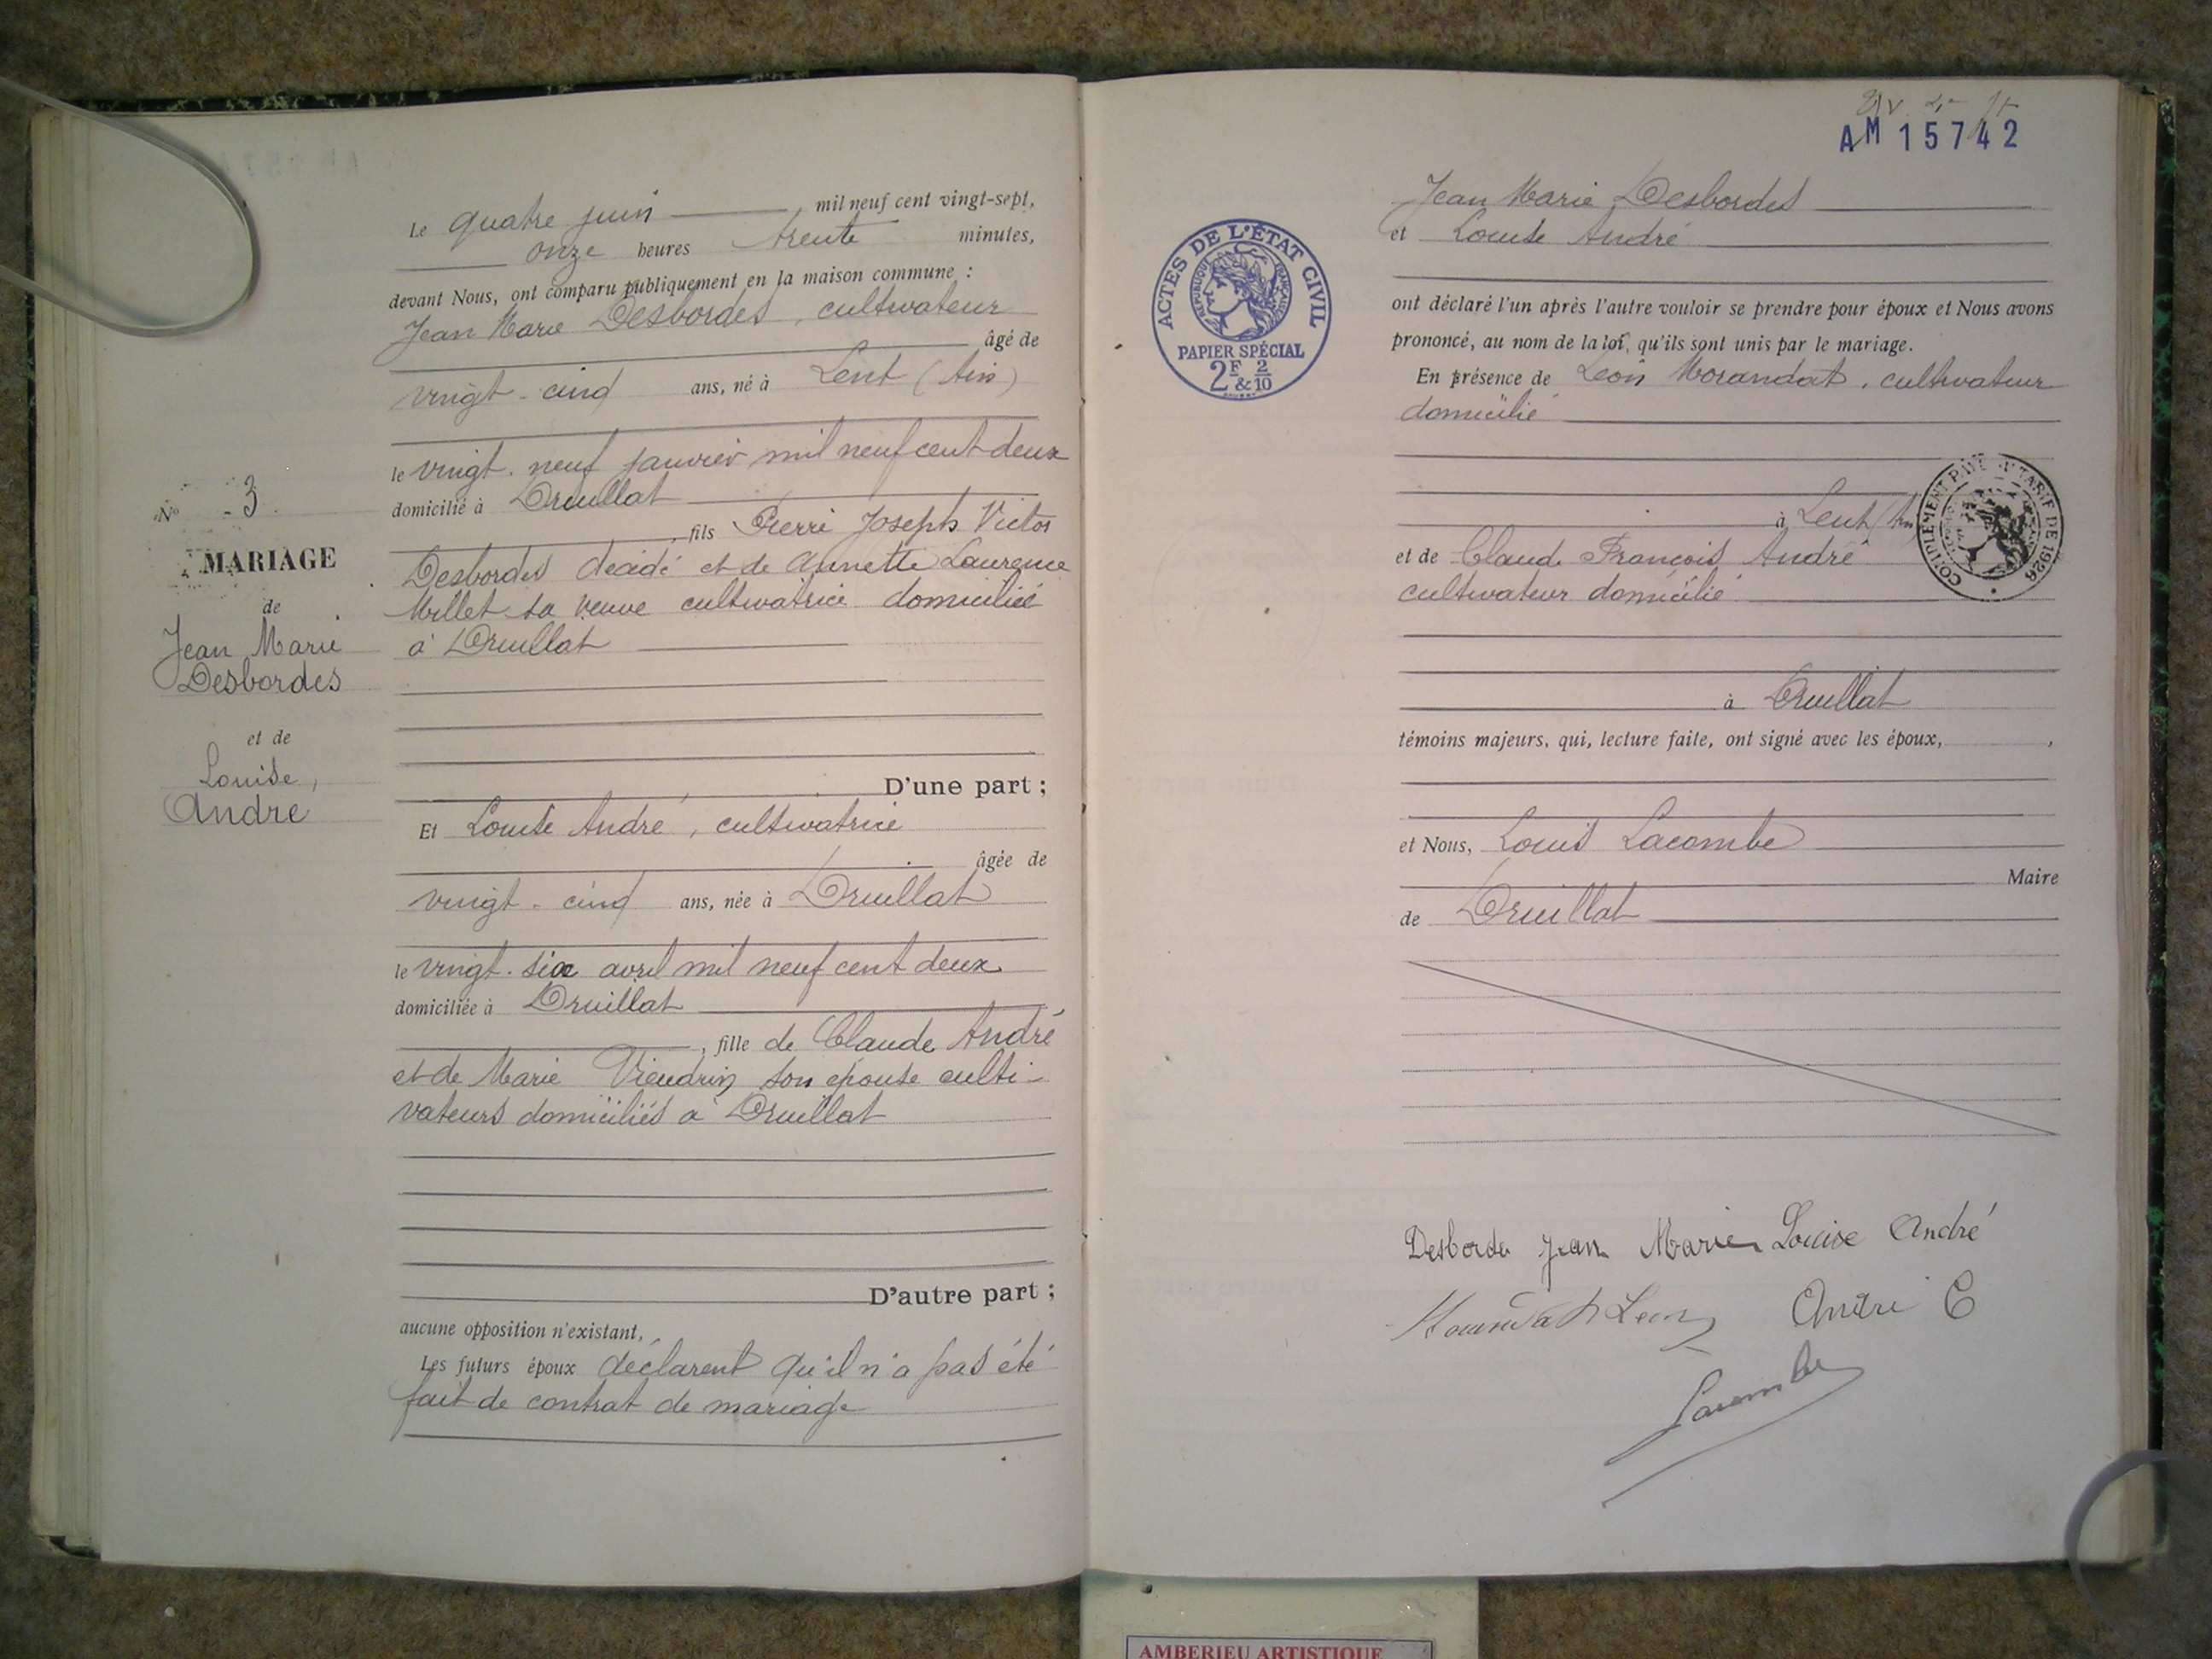 N° 3
MARIAGE
de
Jean Marie
Desbordes
et de
Louise
André
Le quatre juin, mil neuf cent vingt-sept,
onze heures trente minutes,
devant Nous, ont comparu publiquement en la maison commune :
Jean Marie Desbordes, cultivateur
âgé de
vingt-cinq ans, né à Lent (Ain)
le vingt-neuf janvier mil neuf cent deux
domicilié à Druillat
, fils Pierre Joseph Victor
Desbordes décédé et de Annette Laurence
Millet sa veuve cultivatrice domiciliée
à Druillat
D'une part ;
Et Louise André, cultivatrice
âgée de
vingt-cinq ans, née à Druillat
le vingt-six avril mil neuf cent deux
domiciliée à Druillat
, fille de Claude André
et de Marie son épouse culti-
vateurs domiciliés à Druillat
D'autre part ;
aucune opposition n'existant,
Les futurs époux déclarent qu'il n'a pas été
fait de contrat de mariage
AM 15742
ACTES DE L'ÉTAT CIVIL
RÉPUBLIQUE FRANÇAISE
PAPIER SPÉCIAL
2F & 2/10
Jean Marie Desbordes
et Louise André
ont déclaré l'un après l'autre vouloir se prendre pour époux et Nous avons
prononcé, au nom de la loi, qu'ils sont unis par le mariage.
En présence de Léon Morandat, cultivateur
domicilié
à Lent (Ain
COMPLÉMENT PAYÉ TARIF DE 1926
et de Claude François André
cultivateur domicilié
à Druillat
témoins majeurs, qui, lecture faite, ont signé avec les époux,
et Nous, Louis Lacombe
Maire
de Druillat
Desbordes Jean Marie Louise André
Morandat Léon André C
Lacombe
AMBERIEU ARTISTIQUE